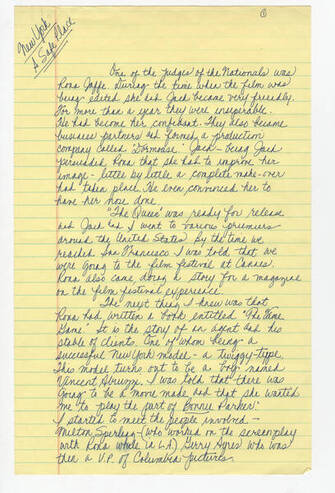 ①
New York
A Safe Place
One of the judges of the Nationals was
Rona Jaffe. During the time when the film was
being edited she and Jack became very friendly.
For more than a year they were inseparable.
He had become her confidant. They also became
business partners and formed a production
company called "Dormouse." Jack - being Jack
persuaded Rona that she had to improve her
image - little by little a complete make-over
had taken place. He even convinced her to
have her nose done.
"The Queen" was ready for release
and Jack and I went to various premiers
around the United States. By the time we
reached San Francisco I was told that we
were going to the film festival at Cannes.
Rona also came, doing a story for a magazine
on the film festival experience.
The next thing I knew was that
Rona had written a book entitled "The Fame
Game". It is the story of an agent and his
stable of clients. One of whom being a
successful New York model - a twiggy-type.
This model turns out to be a boy named
Vincent Abruzzi. I was told that there was
going to be a movie made and that she wanted
me to play the part of Bonnie Parker!
I started to meet the people involved -
Milton Sperling - (who worked on the screenplay
with Rona while in L.A.) Gerry Ayres who was
then a V.P. of Columbia pictures.